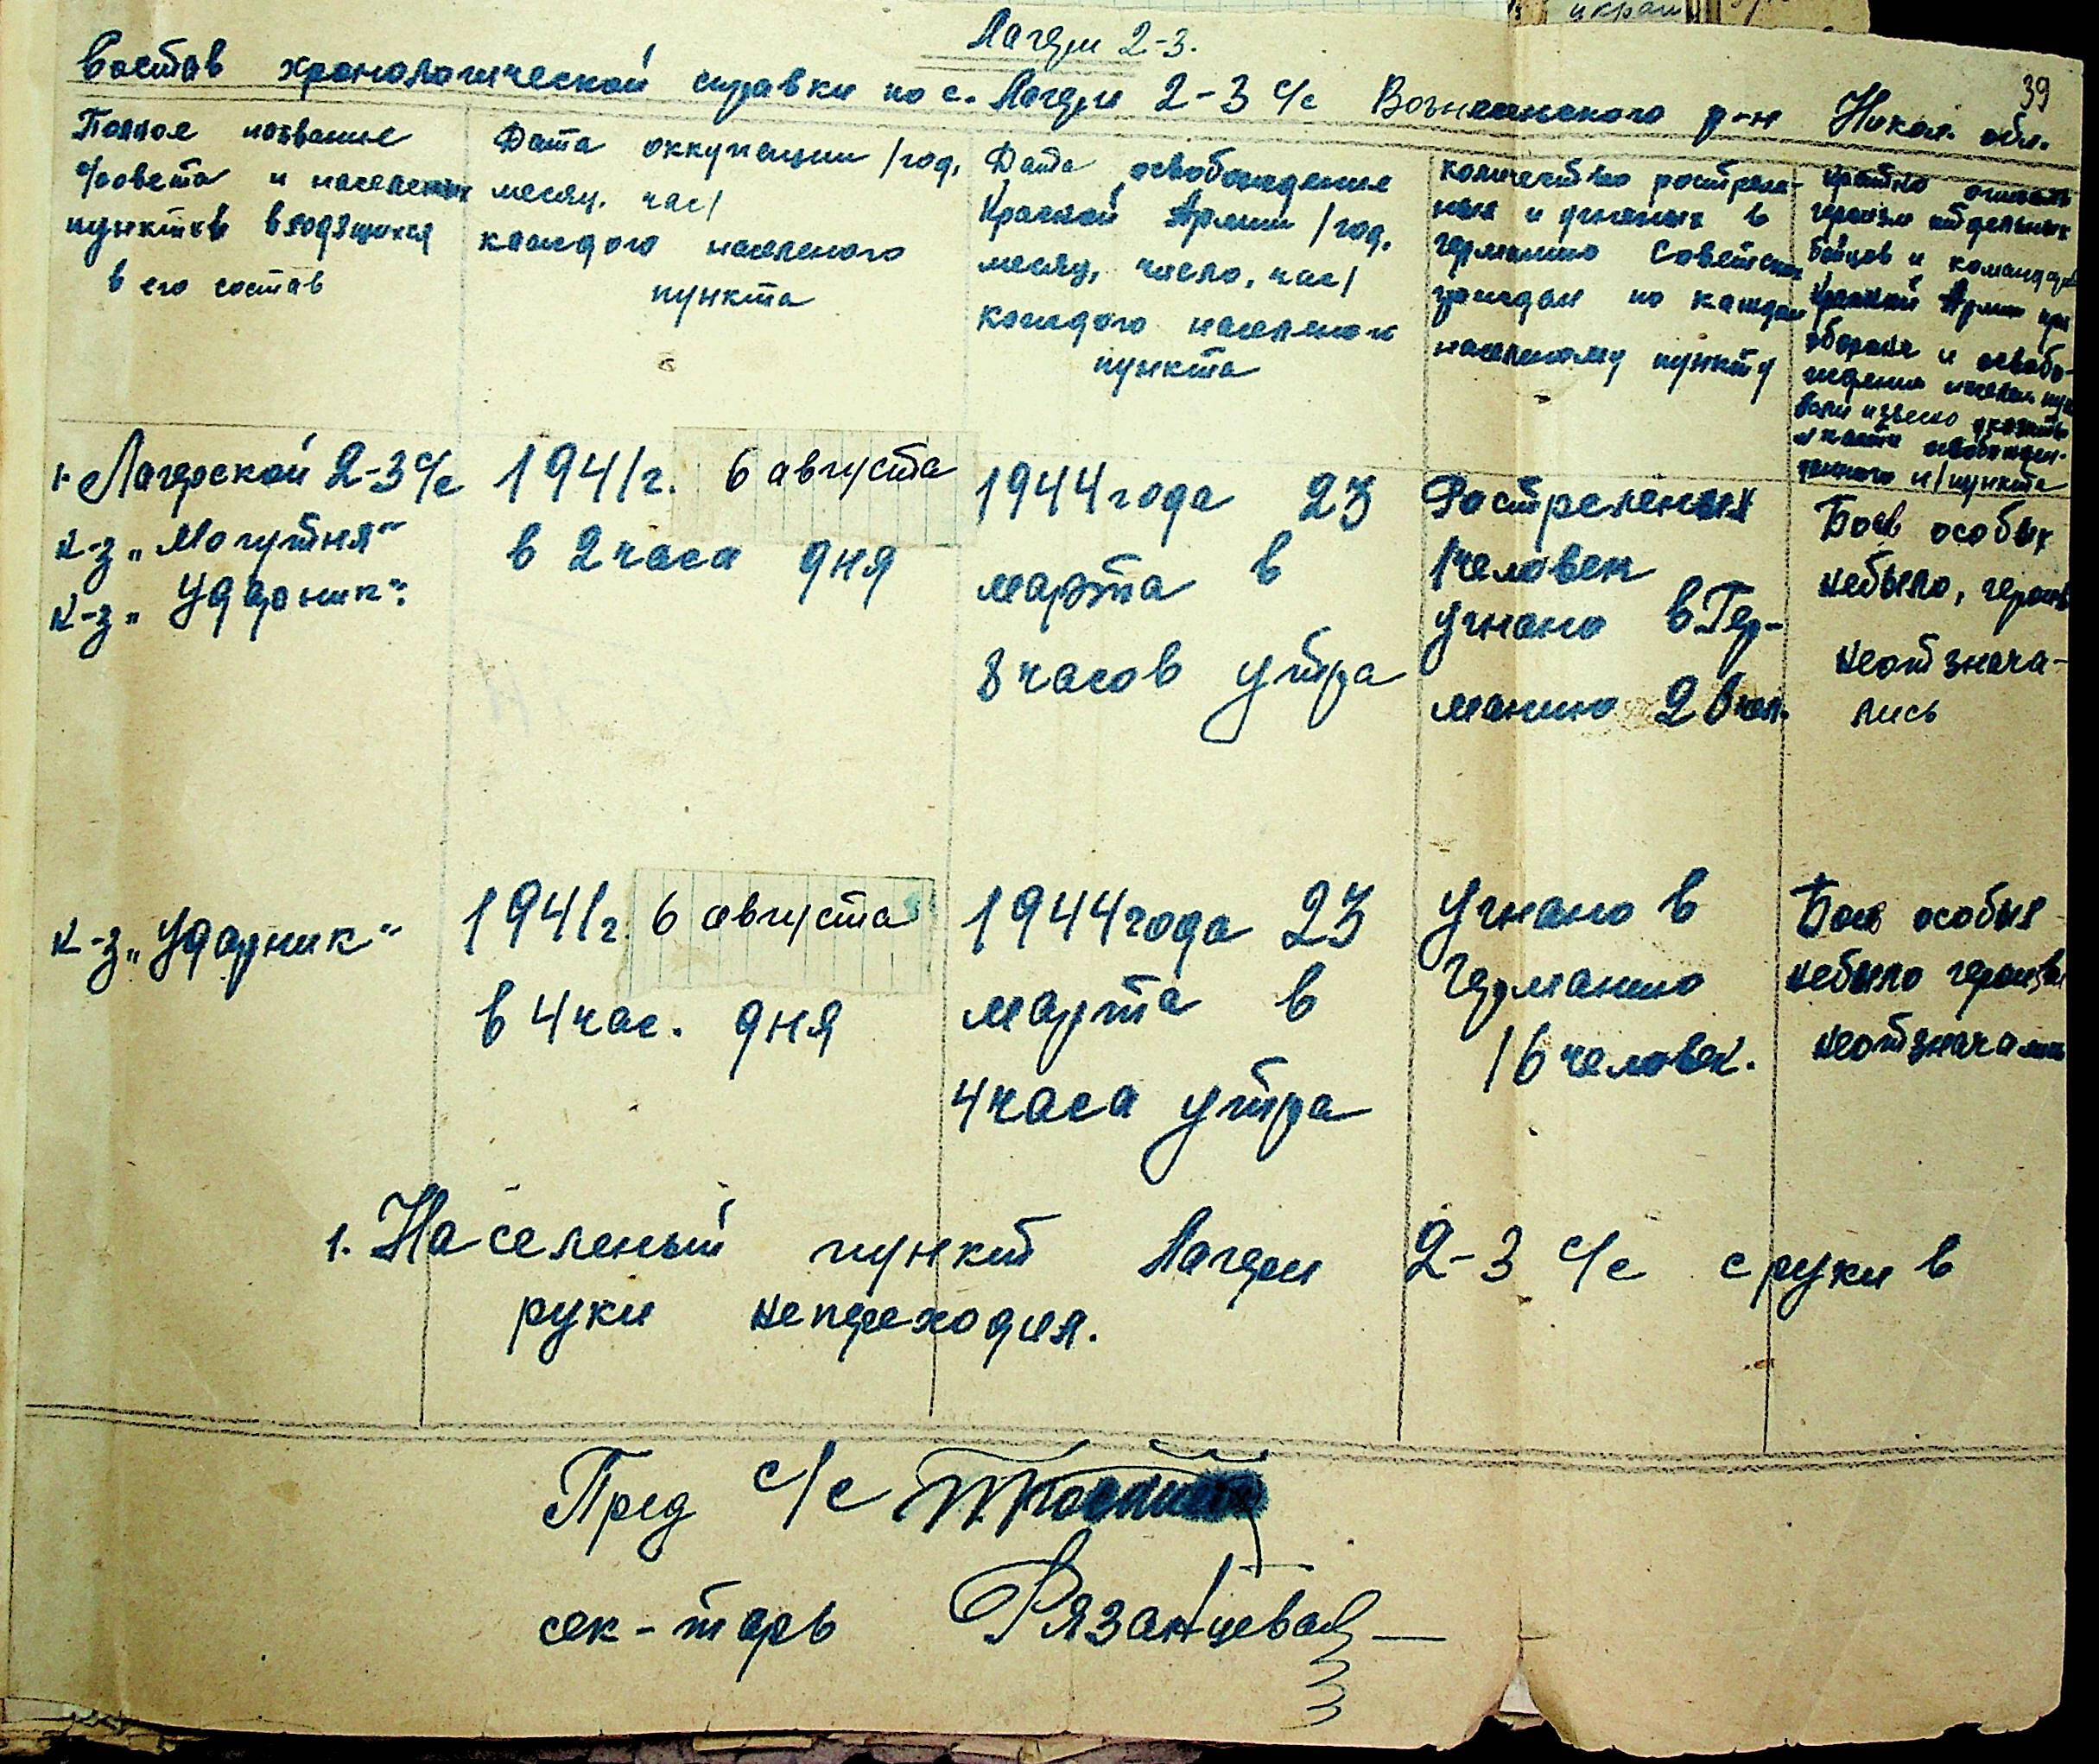 украин
Лагери 2-3.
39
Состав хронологической справки по с. Лагери 2-3 с/с Вознесенского р-н Никол. обл.
Полное название
с/совета и населеных
пунктов входящихся
в его состав
Дата оккупации /год,
месяц, час/
каждого населеного
пункта
Дата освобождение
Красной Армии /год,
месяц, число, час/
каждого населеного
пункта
количество растреля-
ных и угнаных в
германию Советских
граждан по каждому
населеному пункту
кратко описать
героизм отдельных
бойцов и командиров
Красной Армии при
обороне и освобо-
ждении населен. пун
указать
освобожден-
ного н/пункта
1. Лагерской 2-3 с/с
к-з „Могутня"
к-з „Ударник".
1941г. 6 августа
в 2 часа дня
1944 года 23
марта в
8 часов утра
Растреленых
1 человек
угнано в Гер-
манию 20 чел.
Боев особых
небыло, героев
неотзнача-
лись
к-з „Ударник"
1941г. 6 августа
в 4 час. дня
1944 года 23
марта в
4 часа утра
Угнано в
Германию
16 человек.
Боев особых
небыло героизм
неотзначались
1. Населеный пункт Лагери 2-3 с/с с руки в
руки непереходил.
Пред с/с
сек-тарь Рязанцева